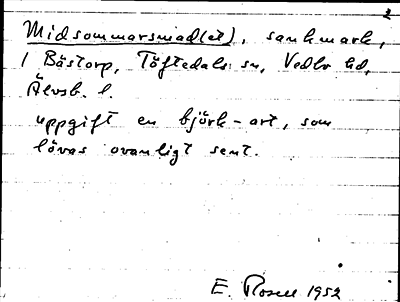 2
Midsommarsmad(et), sankmark,
i Bästorp, Töftedals sn, Vedbo hd,
Älvsb. l.
uppgift en björk-art, som
lövas ovanligt sent.
E. Rosell 1952